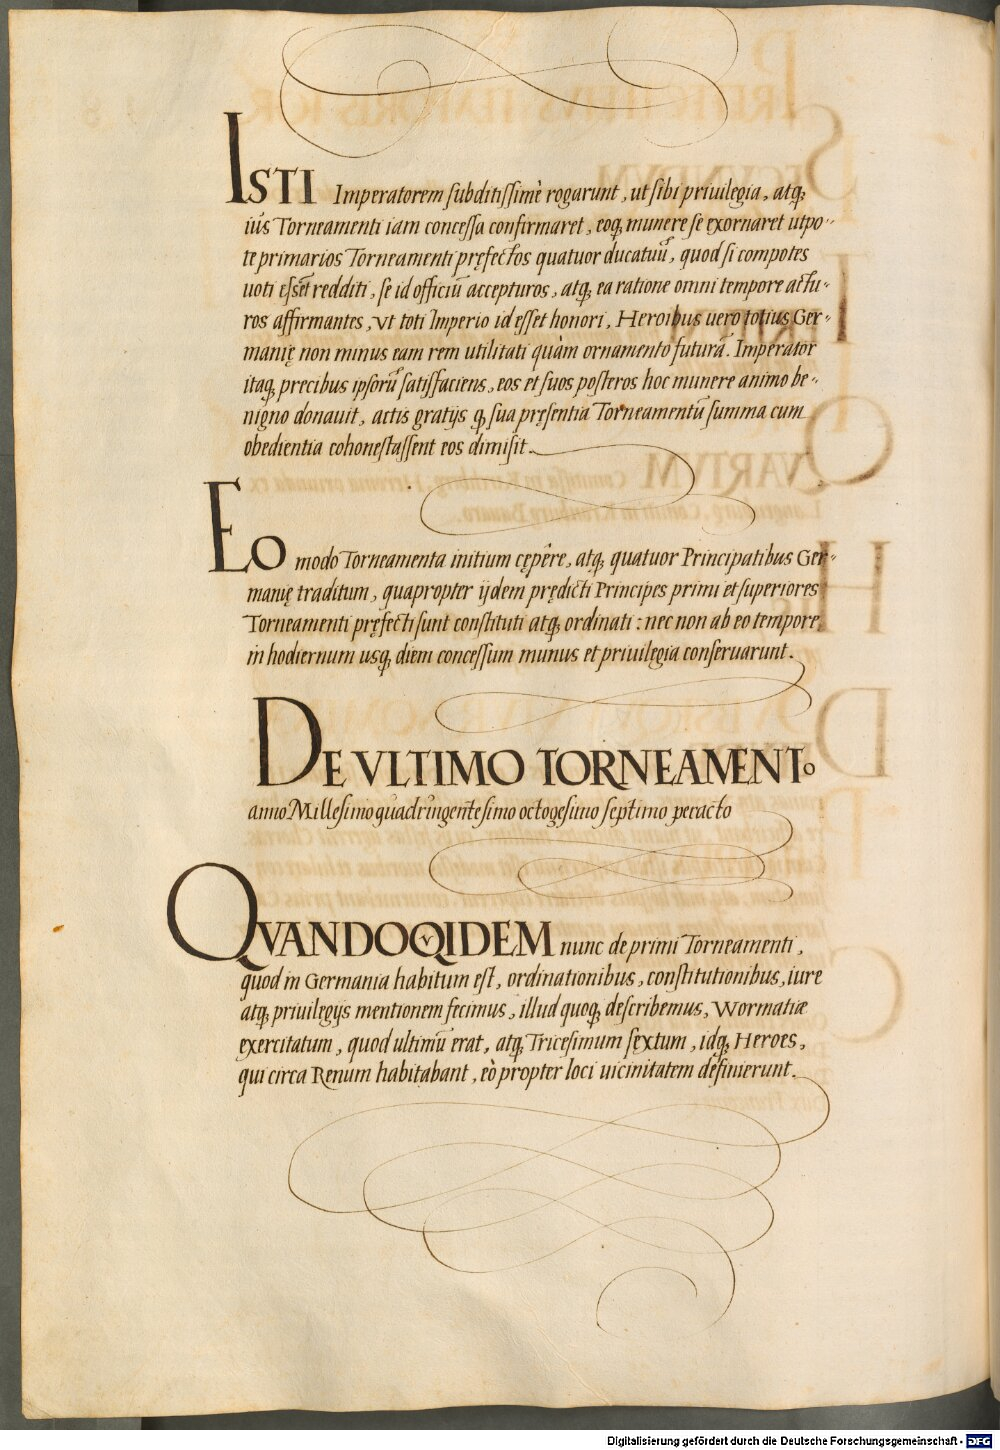 ISTI Imperatorem subditissimè rogarunt, ut sibi priuilegia, atq;
iu᷒s Torneamenti iam concessa confirmaret, eoq; munere se exornaret utpo-
te primarios Torneamenti pręfectos quatuor ducatuũ, quod si compotes
uoti essẽt redditi, se id officiũ accepturos, atq; ea ratione omni tempore actu-
ros affirmantes, vt toti Imperio id esset honori, Heroibus uero totius Ger-
manię non minus eam rem utilitati quàm ornamento futurã. Imperator
itaq; precibus ipsorũ satisfaciens, eos et suos posteros hoc munere animo be-
nigno donauit, actis gratijs q; sua pręsentia Torneamentũ summa cum
obedientia cohonestassent eos dimisit.
EO modo Torneamenta initium cępêre, atq; quatuor Principatibus Ger-
manię traditum, quapropter ijdem prędicti Principes primi et superiores
Torneamenti pręfecti sunt constituti atq; ordinati: nec non ab eo tempore
in hodiernum usq; diem concessum munus et priuilegia conseruarunt.
DE VLTIMO TORNEAMENTo
anno Millesimo quadringentesimo octogesimo septimo peracto
QVANDOQVIDEM nunc de primi Torneamenti,
quod in Germania habitum est, ordinationibus, constitutionibus, iure
atq; priuilegijs mentionem fecimus, illud quoq; describemus, Wormatiæ
exercitatum, quod ultimũ erat, atq; Tricesimum sextum, idq; Heroes,
qui circa Renum habitabant, eò propter loci uicinitatem definierunt.
Digitalisierung gefördert durch die Deutsche Forschungsgemeinschaft - DFG